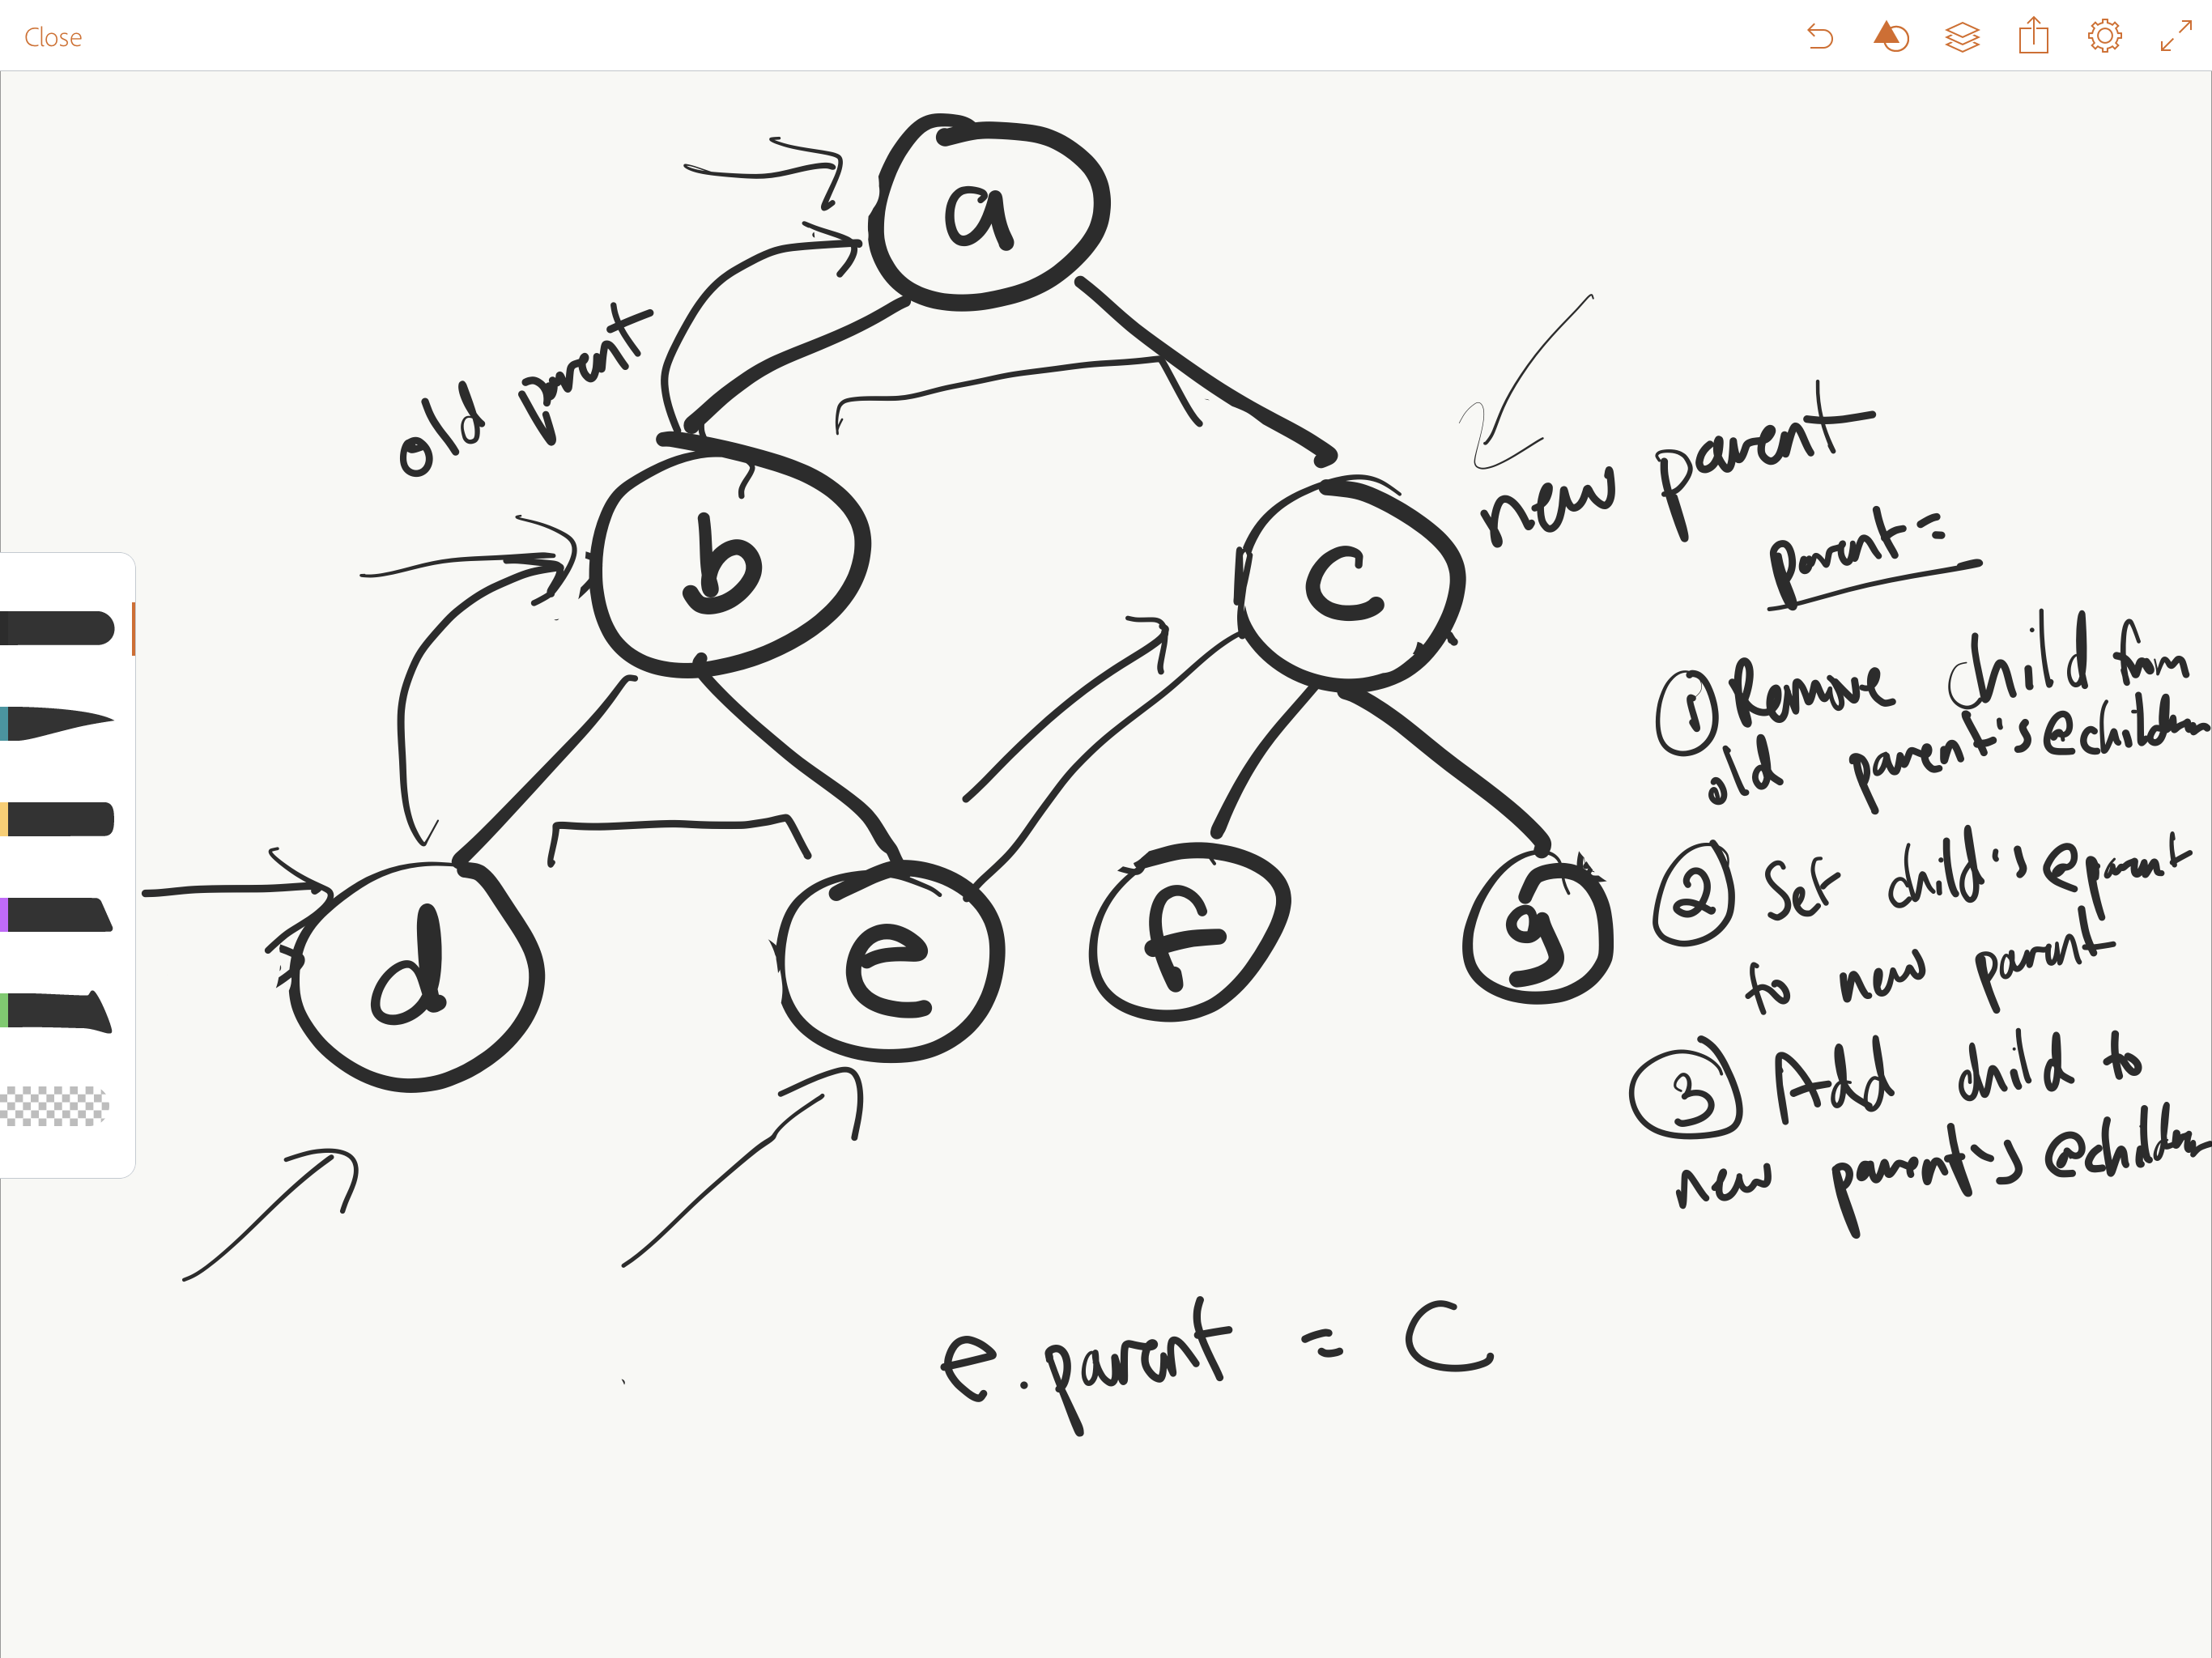 Close
a
old parent
new parent
b
c
parent =
① Remove child from
old parent's @children
d
e
f
g
② Set child's @parent
to new parent
③ Add child to
new parent's @children
e.parent = c